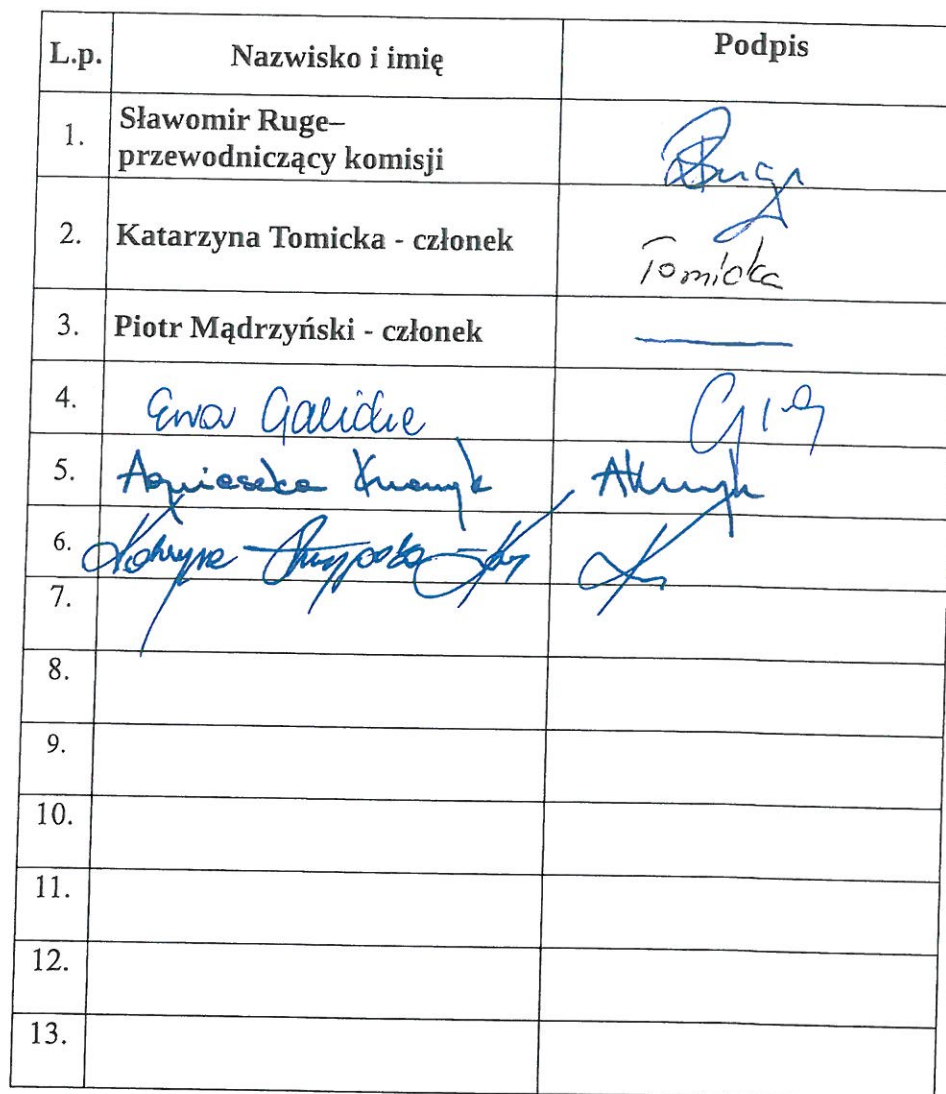 L.p. Nazwisko i imię Podpis
1. Sławomir Ruge–
przewodniczący komisji
2. Katarzyna Tomicka - członek Tomicka
3. Piotr Mądrzyński - członek
4. Ewa
5. Agnieszka
6.
7.
8.
9.
10.
11.
12.
13.